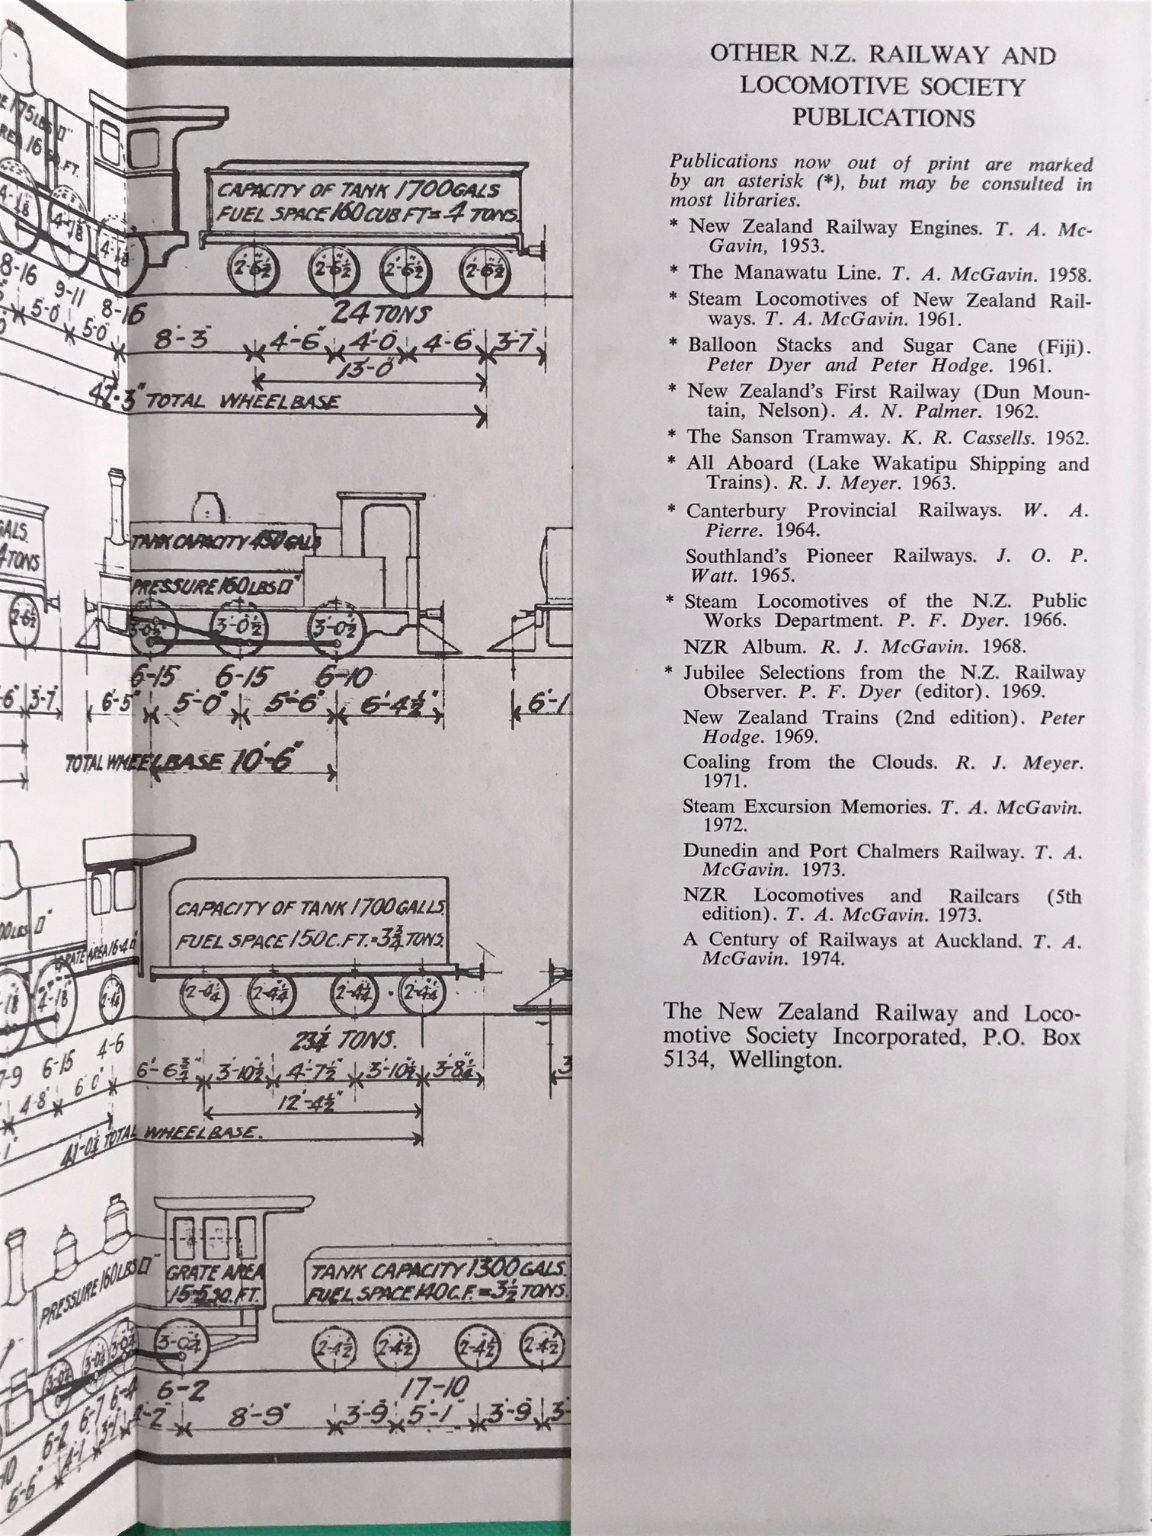 E 175 LBS □"
REA 16 SQ. FT.
CAPACITY OF TANK 1700 GALS
FUEL SPACE 160 CUB FT = 4 TONS.
4'-1⅛ 4'-1⅛ 4'-1⅛
2'-6½" 2'-6½" 2'-6½" 2'-6½"
8-16 9-11 8-16
24 TONS
5'-0" 5'-0" 8'-3" 4'-6" 4'-0" 4'-6" 3'-7"
13'-0"
42'-3" TOTAL WHEELBASE
GALS.
4 TONS
TANK CAPACITY 450 GALS
PRESSURE 160 LBS □"
2'-6½ 3'-0½ 3'-0½ 3'-0½
6-15 6-15 6-10
6" 3'-7" 6'-5" 5'-0" 5'-6" 6'-4½" 6'-1
TOTAL WHEELBASE 10'-6"
CAPACITY OF TANK 1700 GALLS.
FUEL SPACE 150 C. FT. = 3¾ TONS.
00 LBS □"
GRATE AREA 16·4 □'
2'-4¼ 2'-4¼ 2'-4¼ 2'-4¼
7-9 6-15 4-6
23¼ TONS.
4'-8" 6'-0" 6'-6¾" 3'-10½" 4'-7½" 3'-10½" 3'-8¼"
12'-4½"
41'-0¼ TOTAL WHEELBASE.
PRESSURE 160 LBS □"
GRATE AREA
15·5 SQ. FT.
TANK CAPACITY 1300 GALS.
FUEL SPACE 140 C.F. = 3½ TONS.
3-0¼ 3-0¼ 3-0¼ 3-0¼ 2-4½ 2-4½ 2-4½ 2-4½
10 6-2 6-7 6-4 6-2
17-10
6'-6" 4'-1" 3'-1" 4'-2" 8'-9" 3'-9" 5'-1" 3'-9" 3'-
OTHER N.Z. RAILWAY AND
LOCOMOTIVE SOCIETY
PUBLICATIONS
Publications now out of print are marked
by an asterisk (*), but may be consulted in
most libraries.
* New Zealand Railway Engines. T. A. Mc-
Gavin, 1953.
* The Manawatu Line. T. A. McGavin. 1958.
* Steam Locomotives of New Zealand Rail-
ways. T. A. McGavin. 1961.
* Balloon Stacks and Sugar Cane (Fiji).
Peter Dyer and Peter Hodge. 1961.
* New Zealand's First Railway (Dun Moun-
tain, Nelson). A. N. Palmer. 1962.
* The Sanson Tramway. K. R. Cassells. 1962.
* All Aboard (Lake Wakatipu Shipping and
Trains). R. J. Meyer. 1963.
* Canterbury Provincial Railways. W. A.
Pierre. 1964.
Southland's Pioneer Railways. J. O. P.
Watt. 1965.
* Steam Locomotives of the N.Z. Public
Works Department. P. F. Dyer. 1966.
NZR Album. R. J. McGavin. 1968.
* Jubilee Selections from the N.Z. Railway
Observer. P. F. Dyer (editor). 1969.
New Zealand Trains (2nd edition). Peter
Hodge. 1969.
Coaling from the Clouds. R. J. Meyer.
1971.
Steam Excursion Memories. T. A. McGavin.
1972.
Dunedin and Port Chalmers Railway. T. A.
McGavin. 1973.
NZR Locomotives and Railcars (5th
edition). T. A. McGavin. 1973.
A Century of Railways at Auckland. T. A.
McGavin. 1974.
The New Zealand Railway and Loco-
motive Society Incorporated, P.O. Box
5134, Wellington.